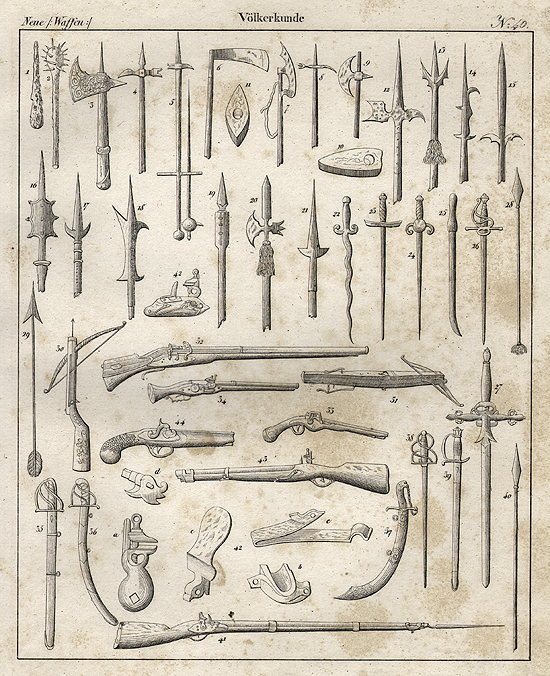 Neue /: Waffen :/ Völkerkunde N: 40.
1 2 3 4 5 6 11 7 8 9 10 12 13 14 15
16 17 18 42 19 20 21 22 23 24 25 26 28
29 30 32 34 31 33 27
44 43 38 39 40
d
35 36 a c 42 e b 37
41